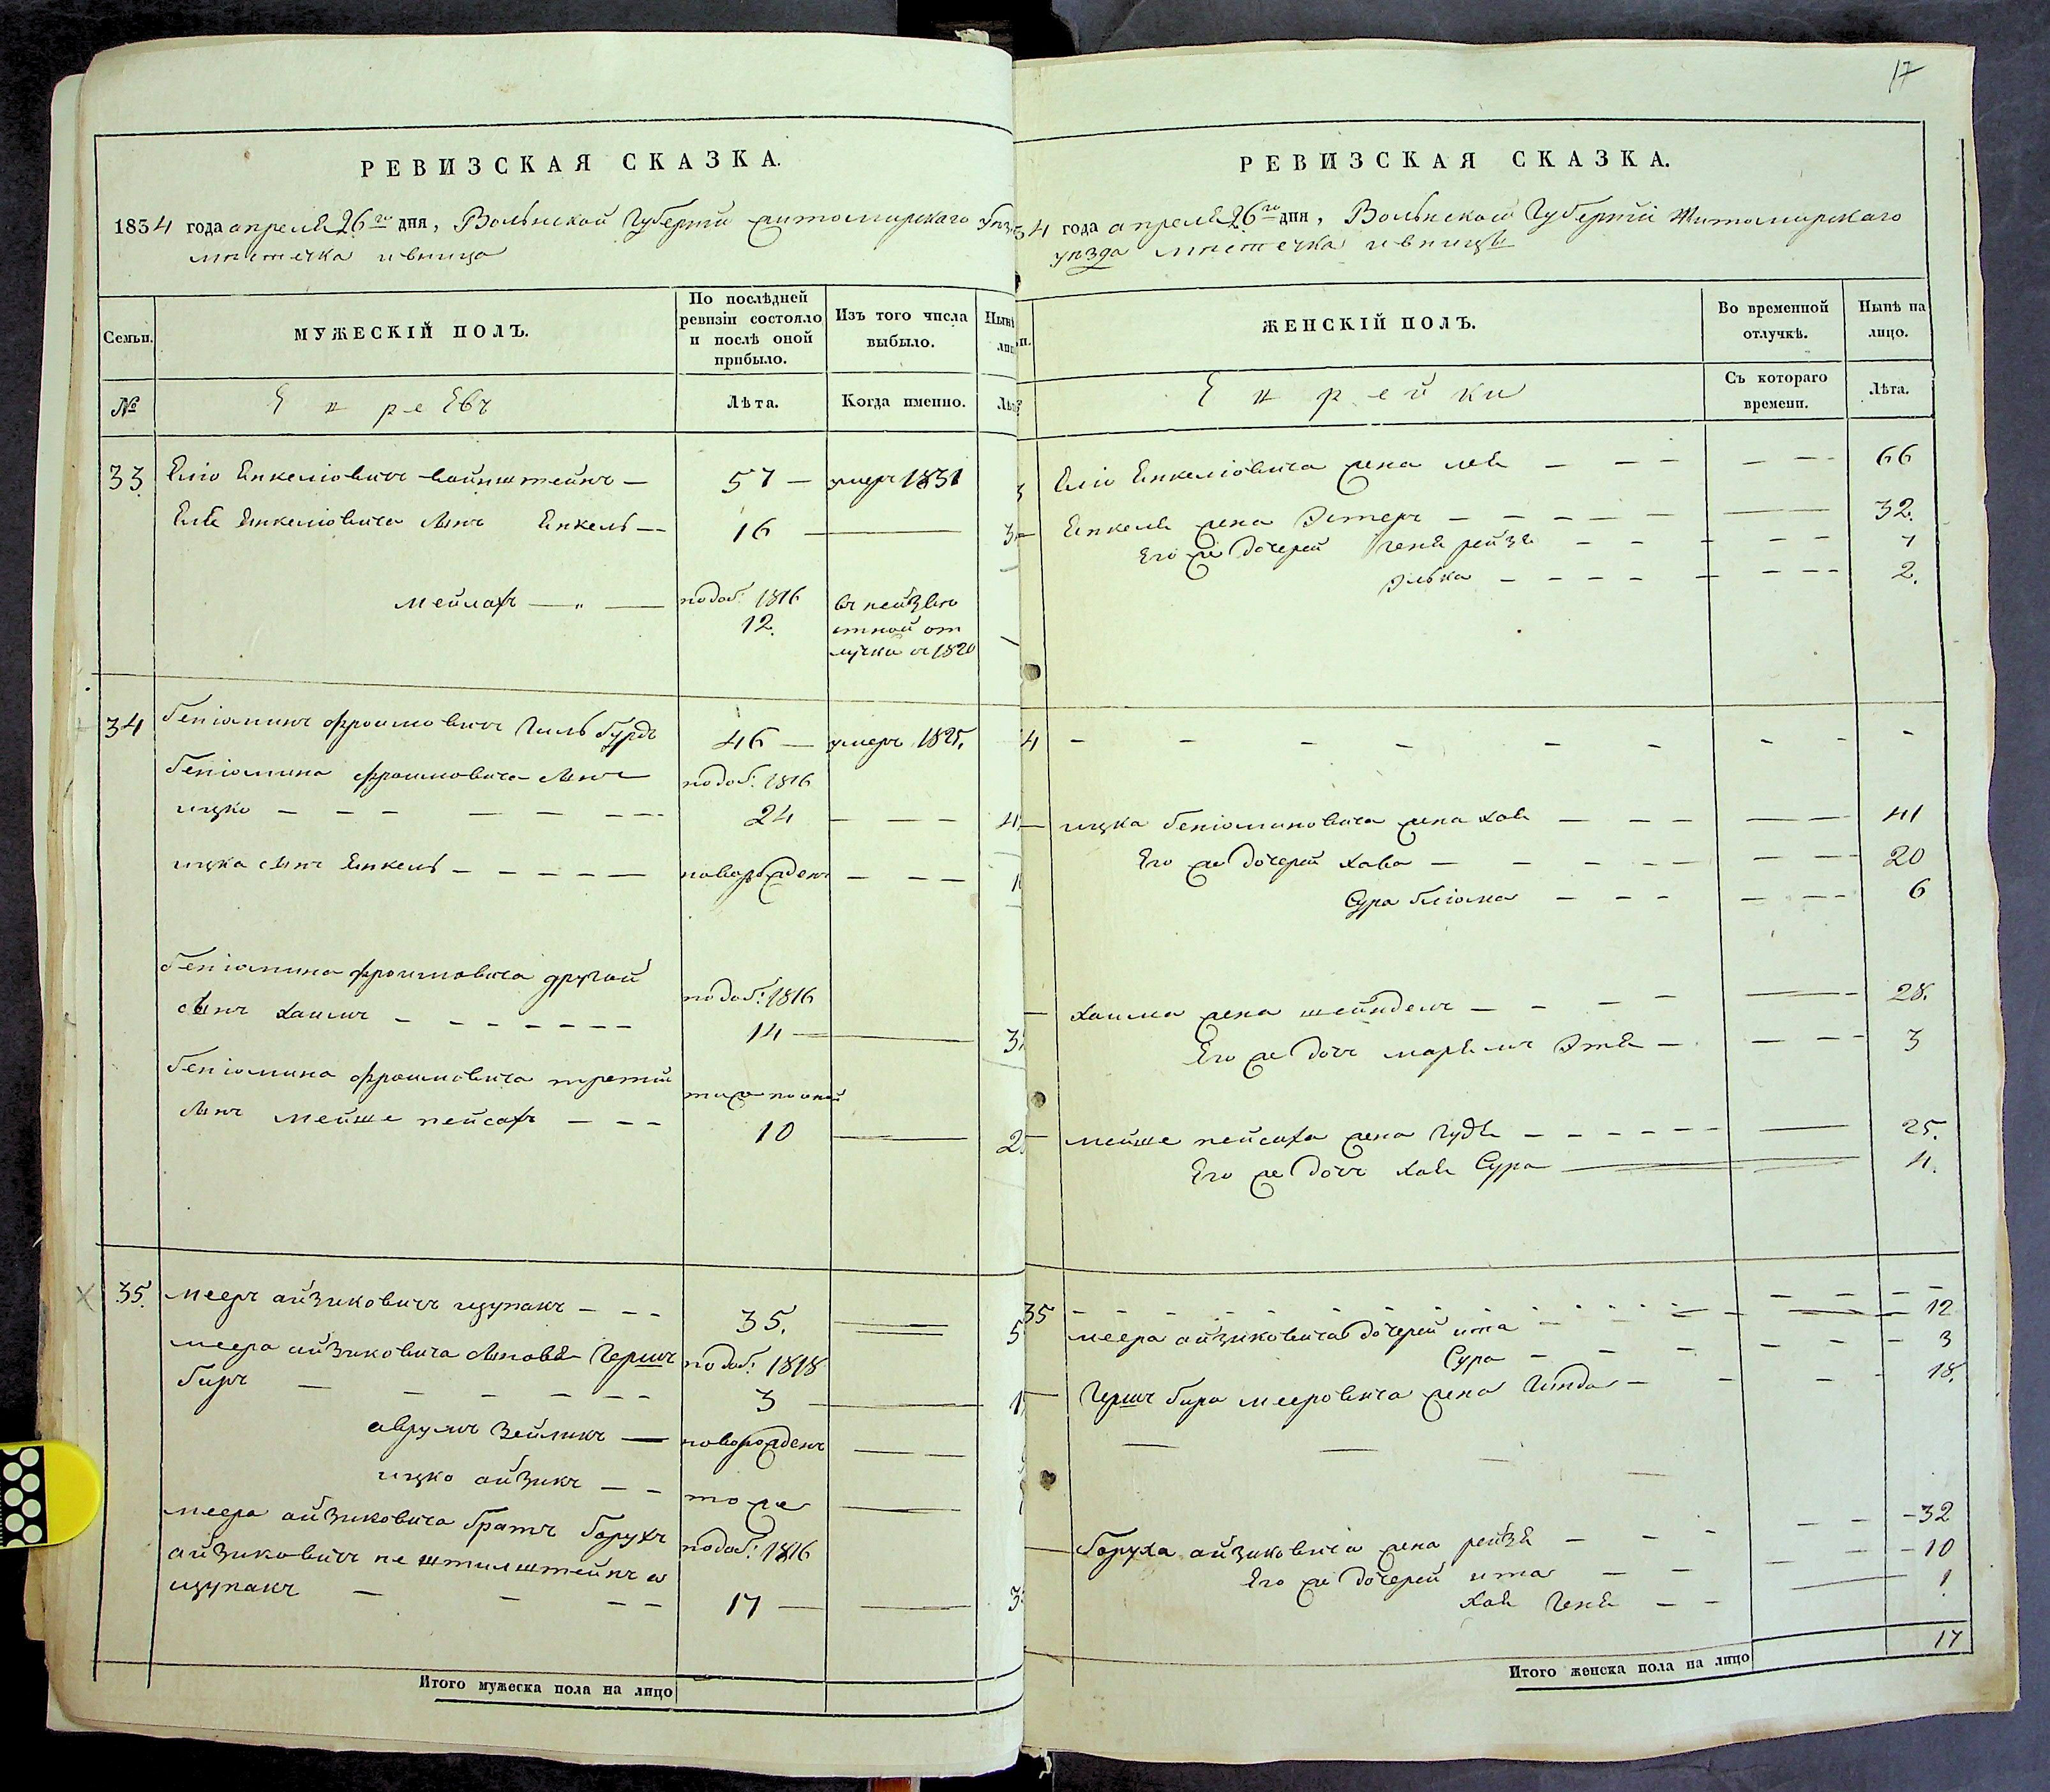 РЕВИЗСКАЯ СКАЗКА.
1834 года апреля 26го дня, Волынской Губернiи житомирскаго
местечка ивница
Семьи.
МУЖЕСКІЙ ПОЛЪ.
По послѣдней ревизіи состояло и послѣ оной прибыло.
Изъ того числа выбыло.
№
Евреевъ
Лѣта.
Когда именно.
33 Еліо Енкеліовичъ вайнштейнъ — 57 — умеръ 1831
Еля Енкеліовича сынъ Енкель — 16 —
мейлахъ — " — по доб: 1816 въ неизвѣ
12. стной от
лучки съ 1820
34 Беніоминъ Фроимовичъ Гильбурдъ 46 — умеръ 1825,
Беніомина Фроимовича сынъ по доб: 1816
ицко — — — 24 — — —
ицка сынъ Енкель — — — новорожденъ — — —
Беніомина Фроимовича другой по доб: 1816
сынъ Хаимъ — — — 14 —
Беніомина Фроимовича третій
сынъ мейше пейсахъ — — — 10 —
35. мееръ айзиковичъ щупакъ — — — 35.
меера айзиковича сыновья Гершъ по доб: 1818
Беръ — — — 3 —
аврумъ Зейликъ — новорожденъ — —
ицко айзикъ — — тоже —
меера айзиковича братъ Борухъ по доб: 1816
айзиковичъ не штилштейнъ а
щупакъ — — — 17 —
Итого мужеска пола на лицо
17
РЕВИЗСКАЯ СКАЗКА.
4 года апреля 26го дня, Волынской Губернiи Житомирскаго
уезда местечка ивницы
ЖЕНСКІЙ ПОЛЪ.
Во временной отлучкѣ.
Нынѣ на лицо.
Еврейки
Съ котораго времени.
Лѣта.
Еліо Енкеліовича жена лея — — — 66
Енкеля жена Эстеръ — — — 32.
Его же дочерей Геня рейзя — — — 7
Элька — — — 2.
4 — — —
ицка Беніоминовича жена Хая — — — 41
Его же дочерей Хава — — — 20
Сура Бліома — — — 6
Хаима жена шейндель — — — 28.
Его же дочь марьямъ Этя — — — 3
мейше пейсаха жена Гудя — — — 25.
Его же дочь Хая Сура — 4.
35 — — —
меера айзиковича дочерей ита — — — 12
Сура — — — 3
Гершъ Бера мееровича жена Гинда — — — 18.
Боруха айзиковича жена рейзя — — — 32
Его же дочерей ита — — — 10
Хая Геня — — 1
17
Итого женска пола на лицо